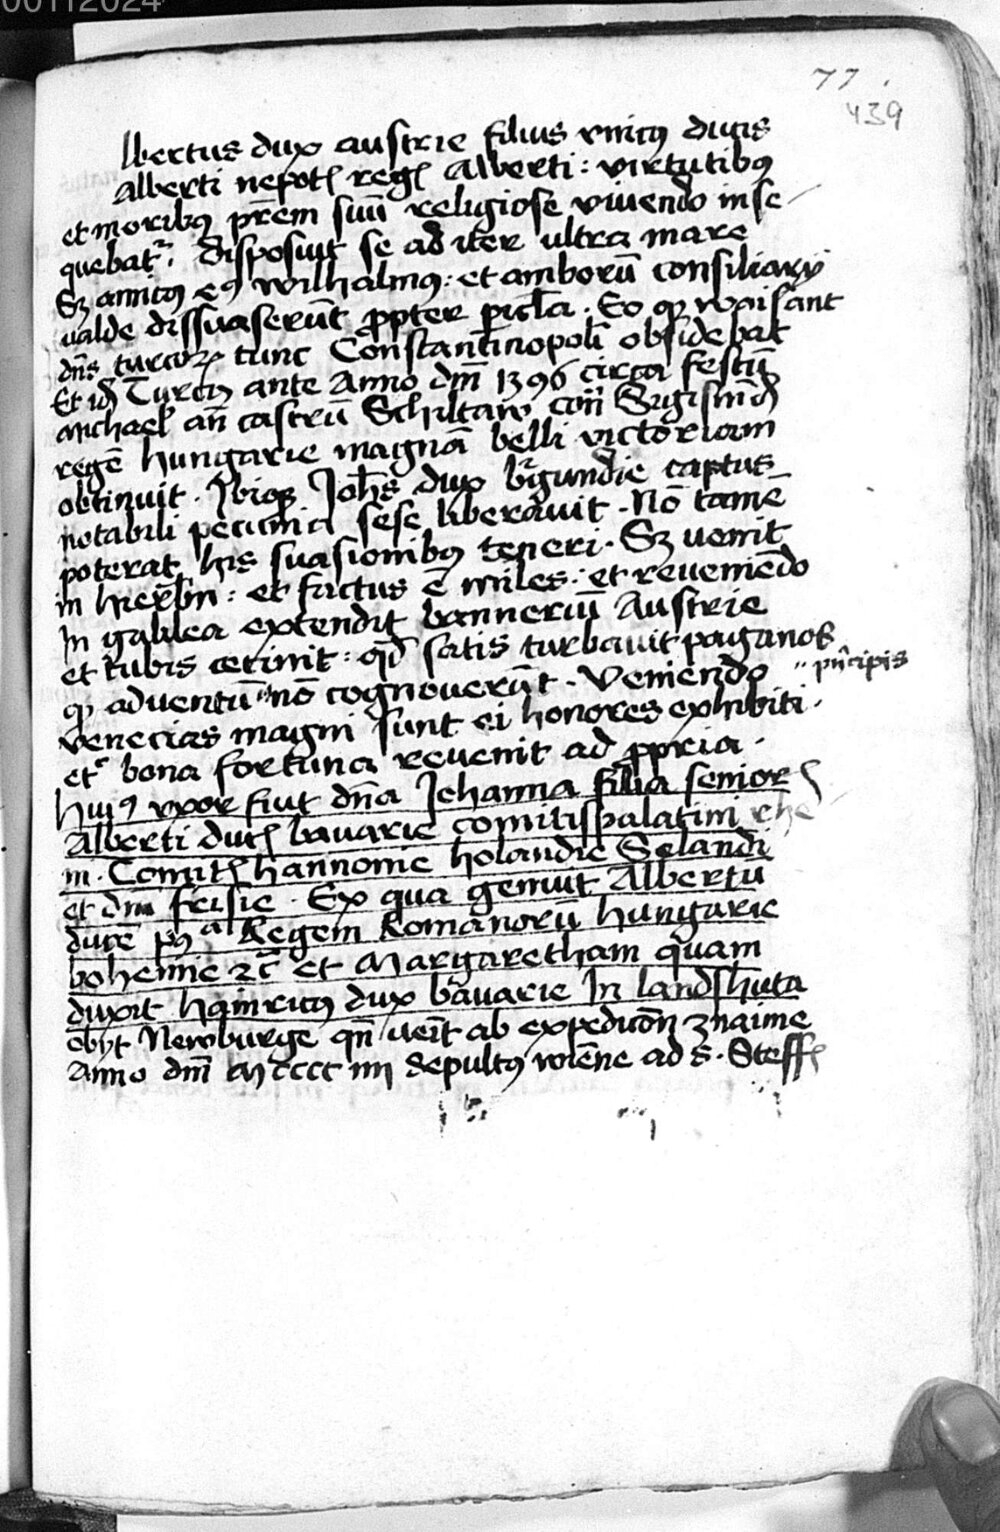 00112024
77.
439
lbertus dux austrie filius vnicꝯ ducis
Alberti nepotꝭ regꝭ Alberti : virtutibꝯ
et moribꝯ pr̄em suū religiose viuendo inse
quebatr̄. disposuit se ad iter ultra mare
Sꝫ amicꝯ eꝯ wilhalmꝯ : et amborū consiliarij
ualde dissuaserūt ꝓpter pic̄la . Eo qꝫ waisant
dn̄s turcoꝝ tunc Constantinopolī obsidebat
Et id̄ Turcꝯ ante Anno dm̄ 1396 circa festū
michael' an̄ castrū Schiltaw cū Sigismūdo
regē hungarie magnā belli victoriam
obtinuit . Ibiqꝫ Joh̄s dux b'gundie captus
notabili pecunia sese liberauit . Nō tamē
poterat his suasionibꝯ teneri . Sꝫ uenit
in hier̄lm : et factus ē miles : et reueniēdo
In galilea extendit banneriū Austrie
et tubis cecinit : qd̄ satis turbauit paganos
qꝫ aduentū " nō cognouerūt . Veniendo " pn̄cipis
venecias magni sunt ei honores exhibiti .
et bona fortuna reuenit ad ꝓpria .
huiꝯ vxor fuit dn̄a Johanna filia seniorꝭ
Alberti ducꝭ bauarie comitispalatini rhe
ni . Comitꝭ hannonie holandie Selandi
et dn̄i frisie . Ex qua genuit Albertū
ducē pꝯ a Regem Romanorū hungarie
bohemie ⁊c̄ et Margaretham quam
duxit hainricꝯ dux bauarie In landshuta
obyt Newburge qn̄ ueīt ab expedicōn znaime
Anno dm̄ Mcccc iiii sepultꝯ wiēne ad s . Steffꝭ